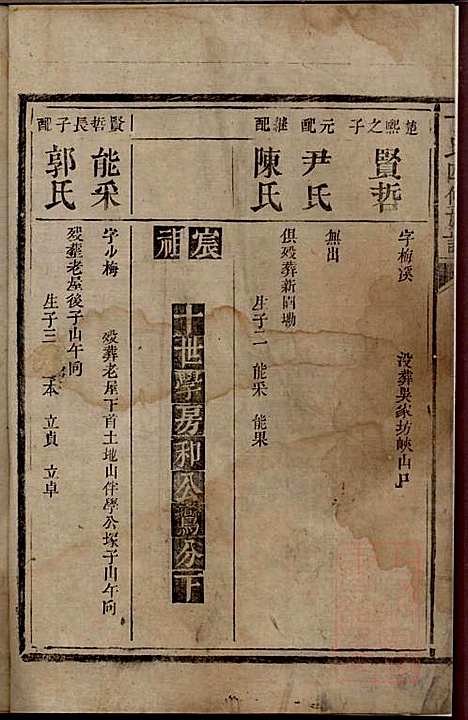 楚熙之子
賢哲
字梅溪
没葬吴家坊峽山口
元配
尹氏
無出
継配
陳氏
俱殁葬新圍坳
生子二 能采 能果
宸祖
十世學房和公鸞公下
賢哲長子
能采
字少梅
殁葬老屋下首土地山伴學公塚子山午向
配
郭氏
殁塟老屋後子山午向
生子三 本 立貞 立卓